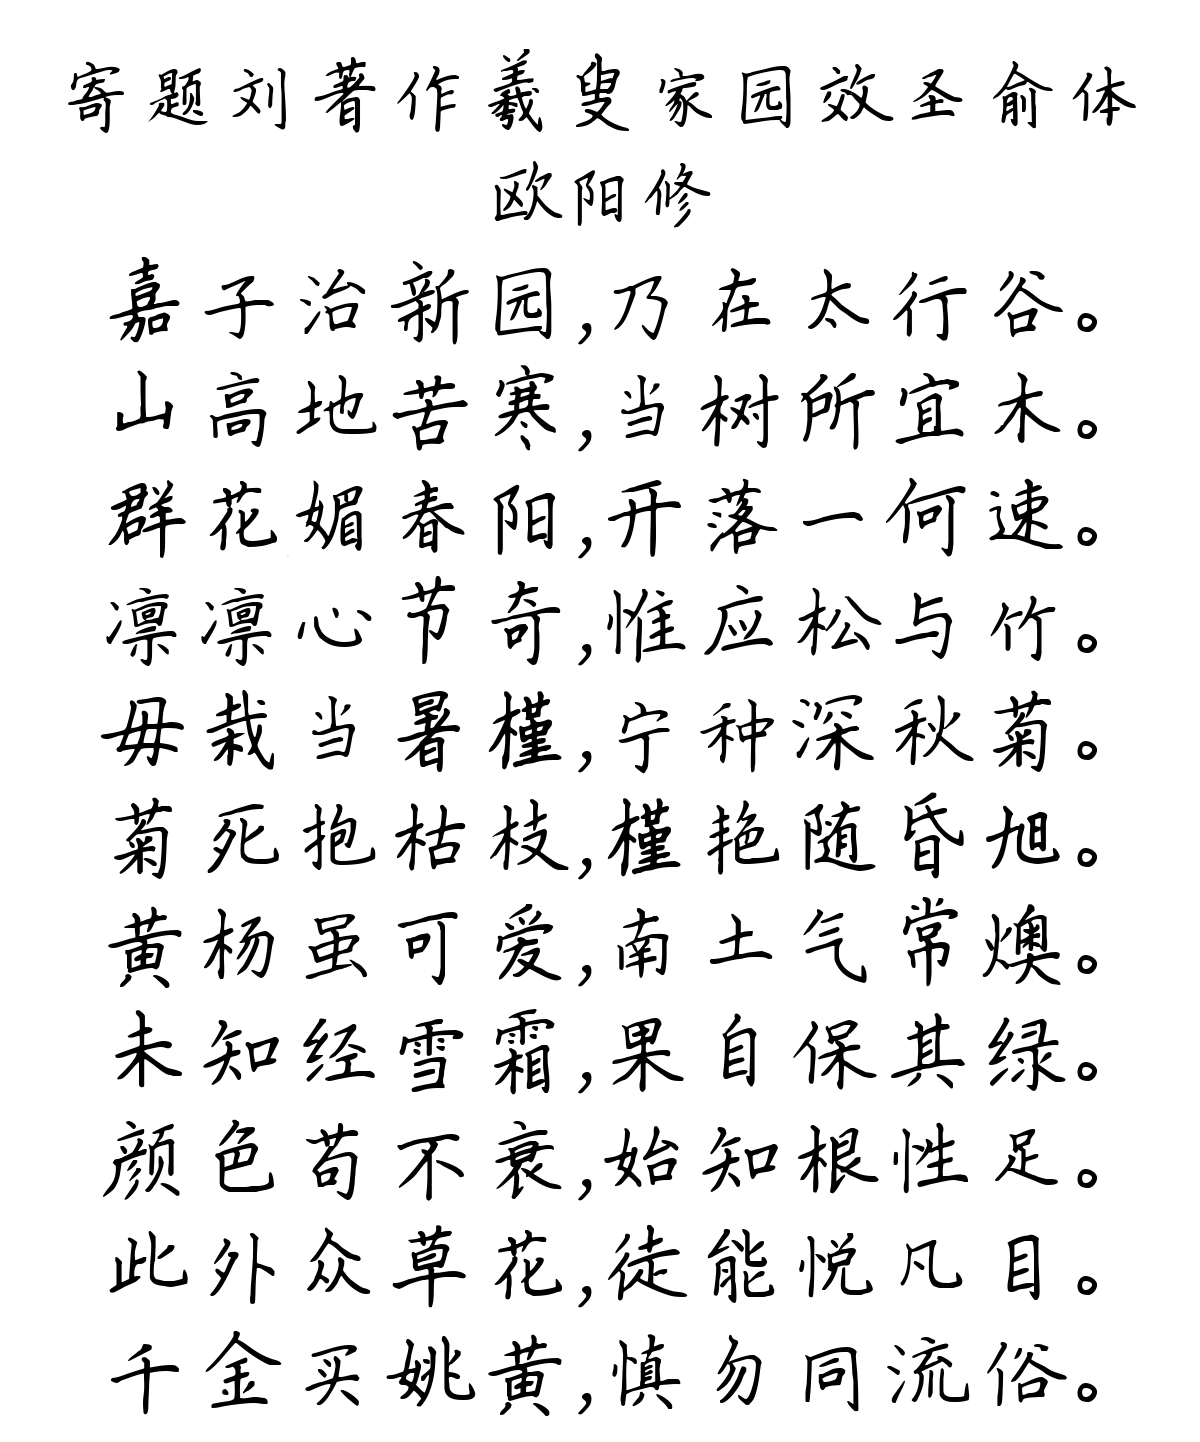 寄题刘著作羲叟家园效圣俞体
欧阳修
嘉子治新园,乃在太行谷。
山高地苦寒,当树所宜木。
群花媚春阳,开落一何速。
凛凛心节奇,惟应松与竹。
毋栽当暑槿,宁种深秋菊。
菊死抱枯枝,槿艳随昏旭。
黄杨虽可爱,南土气常燠。
未知经雪霜,果自保其绿。
颜色苟不衰,始知根性足。
此外众草花,徒能悦凡目。
千金买姚黄,慎勿同流俗。